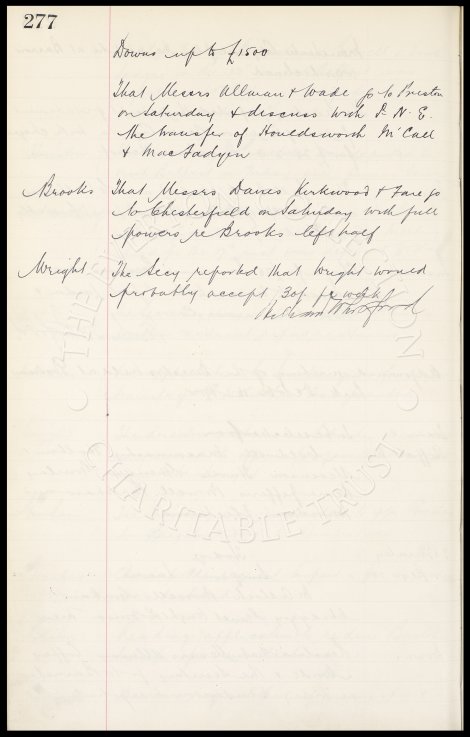 277
Downs up to £1500
That Messrs Allman & Wade go to Preston
on Saturday & discuss with P. N. E.
the transfer of Houldsworth McCall
& MacFadyen
Brooks That Messrs Davies Kirkwood & Fare go
to Chesterfield on Saturday with full
powers re Brooks left half
Wright The Secy reported that Wright would
probably accept 30/- per week
CHARITABLE TRUST